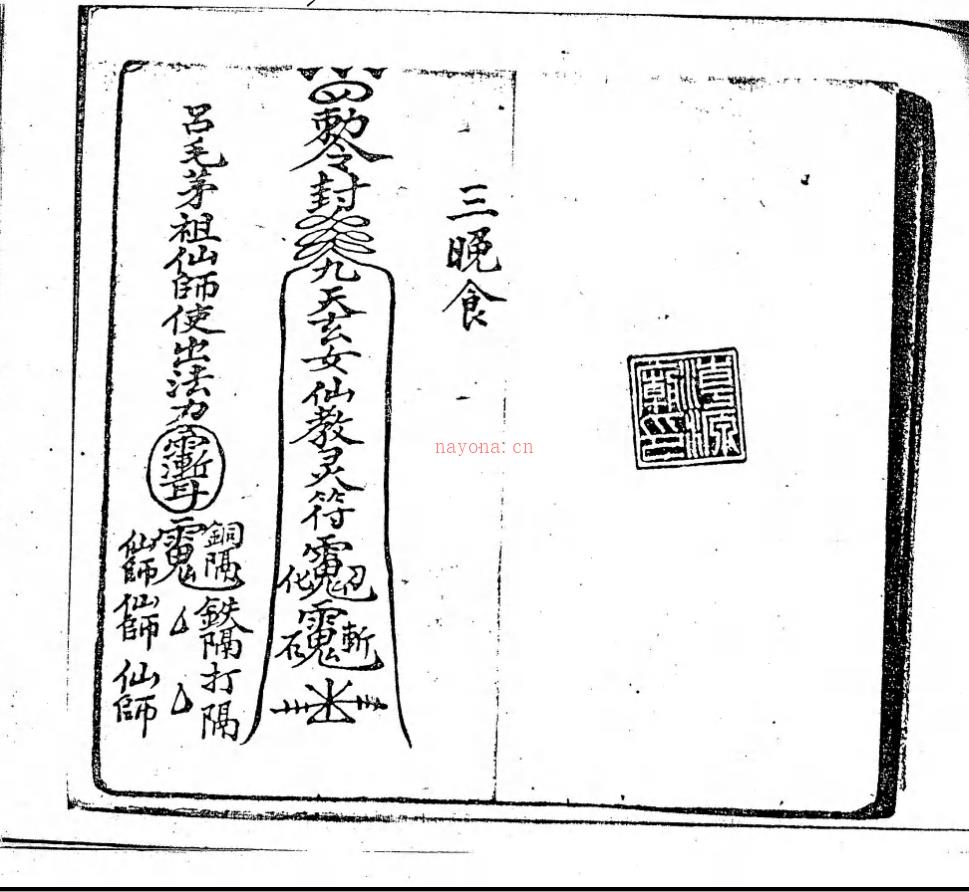 三晚食
勅令封
九天玄女仙教灵符
化
印
石
斬
呂毛茅祖仙師使出法力
銅隔鉄隔打隔
仙師仙師仙師
清源
印
nayona.cn